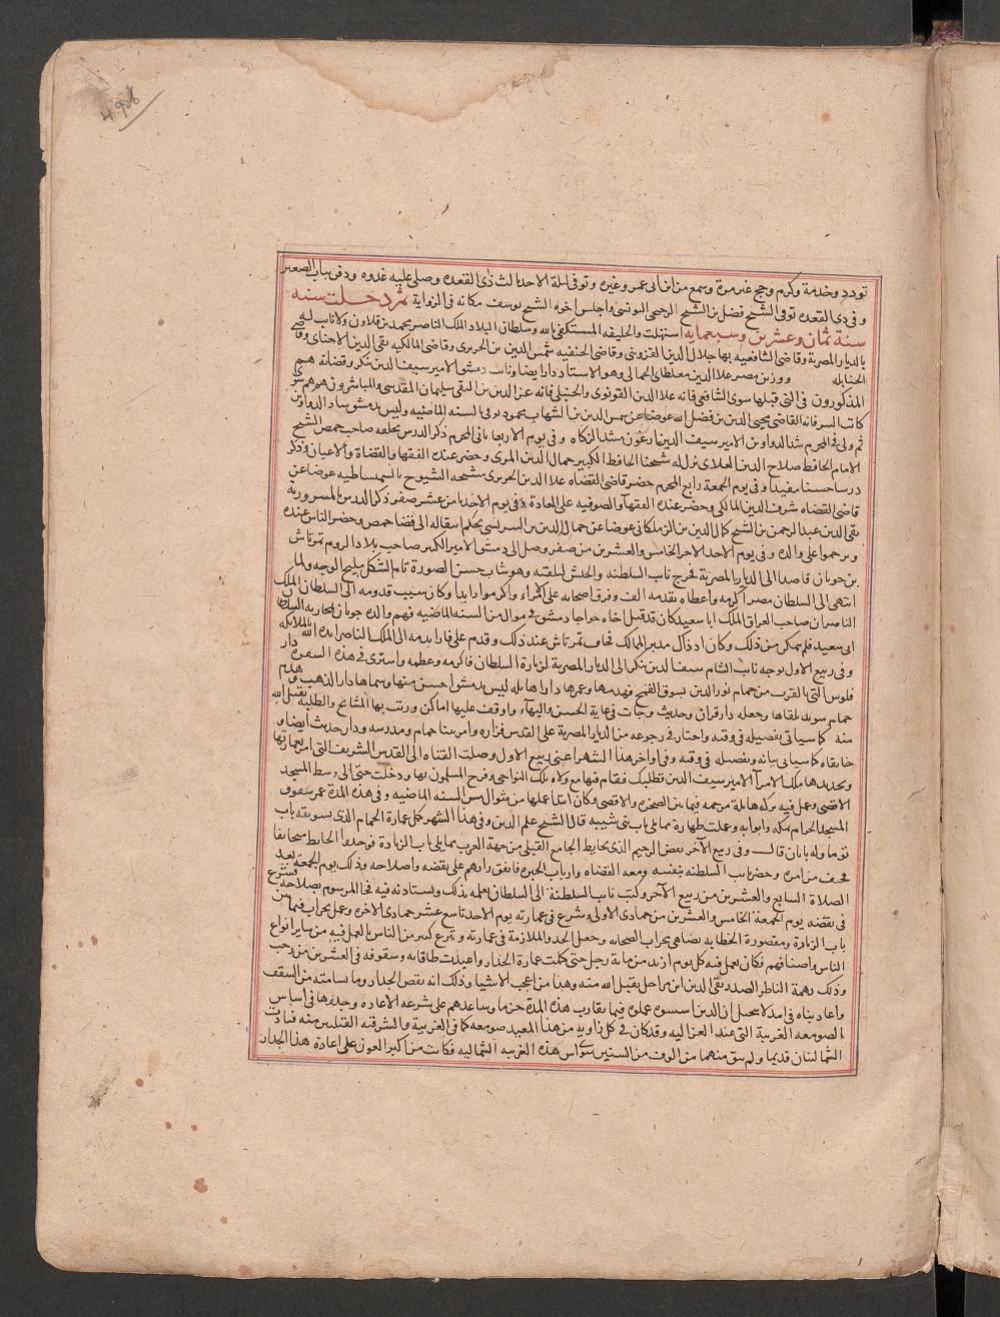 تودد وخدمة وكرم وحج غير مرة وسمع من ابن ابى عمر وغيره وتوفى ليلة الاحد ثالث ذى القعده وصلى عليه غدوه ودفن بباب الصغير
وفى ذى القعده توفى الشيخ فضل بن الشيخ الرجيحى اليونسى واجلس اخوه الشيخ يوسف مكانه فى الزواية ثم دخلت سنه
سنة ثمان وعشرين وسبعمايه استهلت والخليفه المستكفى بالله وسلطان البلاد الملك الناصر محمد بن قلاون ولا نايب له
بالديار المصرية وقاضى الشافعيه بها جلال الدين القزوينى وقاضى الحنفيه شمس الدين بن الحريرى وقاضى المالكيه تقى الدين الاخناى وقاضى
الحنابله ووزير مصر علا الدين مغلطاى الجمالى وهو الاستاد دار ايضا ونايب دمشق الامير سيف الدين تنكز وقضاته هم
المذكورون فى التى قبلها سوى الشافعى فانه علا الدين القونوى والحنبلى فانه عز الدين بن التقى سليمان المقدسى والمباشرون هم هم سوى
كاتب السر فانه القاضى محيى الدين بن فضل الله عوضا عن شمس الدين بن الشهاب محمود توفى السنه الماضيه وليس بدمشق شاد الدواوين
ثم ولى فى المحرم شد الدواوين الامير سيف الدين ارغون مشد الزكاه وفى يوم الاربعا ثانى المحرم ذكر الدرس بحلقه صاحب حمص الشيخ
الامام الحافظ صلاح الدين العلاى نزل له شيخنا الحافظ الكبير جمال الدين المزى وحضر عنده الفقها والقضاة والاعيان وذكر
درسا حسنا مفيدا وفى يوم الجمعة رابع المحرم حضر قاضى القضاه علا الدين الحريرى مشيخه الشيوخ بالسميساطيه عوضا عن
قاضى القضاه شرف الدين المالكى وحضر عنده الفقهآ والصوفيه على العادة وفى يوم الاحد ثامن عشر صفر ذكر الدرس بالمسرورية
تقى الدين عبد الرحمن بن الشيخ كمال الدين بن الزملكانى عوضا عن جمال الدين بن الشريشى بحكم انتقاله الى قضا حمص وحضر الناس عنده
وترحموا على والده وفى يوم الاحد الاحر الخامس والعشرين من صفر وصل الى دمشق الامير الكبير صاحب بلاد الروم تمرتاش
بن جوبان قاصدا الى الديار المصرية فخرج نايب السلطنه والجيش لملتقته وهو شاب حسن الصورة تام الشكل مليح الوجه ولما
انتهى الى السلطان بمصر اكرمه واعطاه تقدمه الف وفرق اصحابه على الامراء واكرموا زايدا وكان سبب قدومه الى السلطان الملك
الناصر ان صاحب العراق الملك ابا سعيد كان قد قتل اخاه خواجا دمشق فى شوال من السنه الماضيه فهم والده جوبان لمحاربه السلطان
ابى سعيد فلم يتمكن من ذلك وكان اذ ذاك مدبر الممالك فخاف تمرتاش عند ذلك وقدم على فارا بدمه الى الملك الناصر ايده الله بالملائكه
وفى ربيع الاول توجه نايب الشام سيف الدين تنكز الى الديار المصرية لزيارة السلطان فاكرمه وعظمه واشترى فى هذه السفره دار
فلوس التى بالقرب من حمام نور الدين بسوق القمح فهدمها وعمرها دارا هايله ليس بدمشق احسن منها وسماها دار الذهب وهدم
حمام سويد تلقاها وجعله دار قران وحديث وجات فى غاية الحسن والبهآء واوقف عليها اماكن ورتب بها المشايخ والطلبه تقبل الله
منه كما سياتى تفصيله فى وقته واحتار فى رجوعه من الديار المصرية على القدس فزاره وامر ببنا حمام ومدرسه ودار حديث ايضا و
خانقاه كما سياتى بيانه وتفصيله فى وقته وفى اواخر هذا الشهر اعنى ربيع الاول وصلت القناه الى القدس الشريف التى امر بعمارتها
وتجديدها ملك الامرآ الامير سيف الدين قطلبك فقام فيها مع ولاه تلك النواحى وفرح المسلمون بها ودخلت حتى الى وسط المسجد
الاقصى وعمل فيه بركه هايلة مرخمه فيما بين الصخره والاقصى وكان ابتدا عملها من شوال من السنه الماضيه وفى هذه المدة عمر سقوف
المسجد الحرام بمكه وابوابه وعملت طهارة مما يلى باب بنى شيبه قال الشيخ علم الدين وفى هذا الشهر كمل عمارة الحمام الذى بسويقه باب
توما وله بابان قال وفى ربيع الآخر نقض الرخيم الذى بحايط الجامع القبلى من جهة الغرب مما يلى باب الزيادة فوجدوا الحايط متجافيا
فخيف من امره وحضر نايب السلطنه بنفسه ومعه القضاه وارباب الخبره فاتفق رايهم على نقضه واصلاحه وذلك يوم الجمعة بعد
الصلاة السابع والعشرين من ربيع الآخر وكتب نايب السلطنة الى السلطان يعلمه بذلك ويستاذنه فيه فجا المرسوم بصلاحه فشرع
فى نقضه يوم الجمعة الخامس والعشرين من جمادى الاولى وشرع فى عمارته يوم الاحد تاسع عشر جمادى الاخره وعمل محراب فيما بين
باب الزيادة ومقصورة الخطابه يضاهى محراب الصحابه وجعل الجد والملازمة فى عمارته وتبرع كثير من الناس بالعمل فيه من ساير انواع
الناس واصنافهم فكان يعمل فيه كل يوم ازيد من ماية رجل حتى كملت عمارة الجدار واعيدت طاقاته وسقوفه فى العشرين من رجب
وذلك بهمة الناظر الصدر تقى الدين ابن مراحل تقبل الله منه وهذا من اعجب الاشيا وذلك انه نقض الجدار وما يسامته من السقف
واعاد بناه فى امد لا يتخيل ان الذين اسسوه عملوه فيما يقارب هذه المدة حزما وساعدهم على سرعه الاعاده وجدوها فى اساس
الصومعه الغربية التى عند الغزاليه وقد كان فى كل زاويه من هذا المعبد صومعه كما فى الغربية والشرقيه القبليين منه فبادت
الشماليتان قديما ولم يبق منهما من الوف من السنين سوى اس هذه الغربيه الشماليه فكانت من اكبر العون على اعادة هذا الجدار